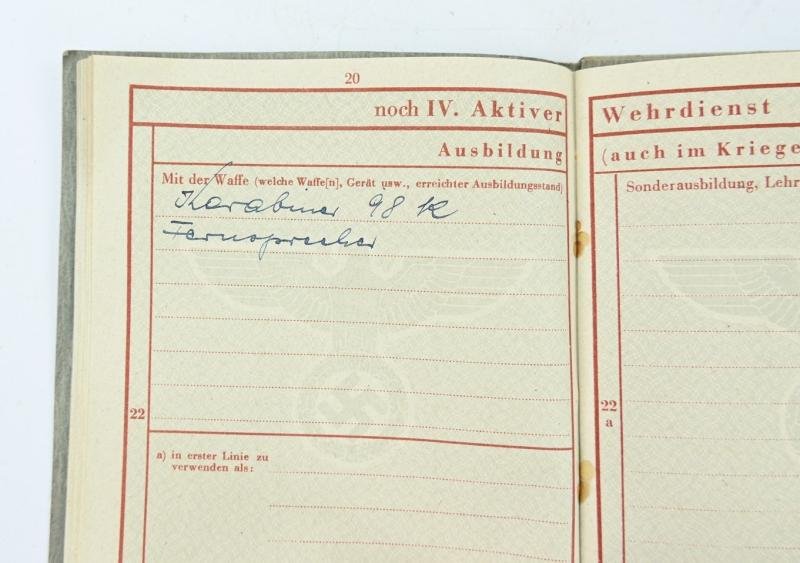 20
noch IV. Aktiver
Ausbildung
Mit der Waffe (welche Waffe[n], Gerät usw., erreichter Ausbildungsstand)
Karabiner 98 K
Fernsprecher
22
a) in erster Linie zu
verwenden als:
Wehrdienst
(auch im Kriege
Sonderausbildung, Lehr
22
a